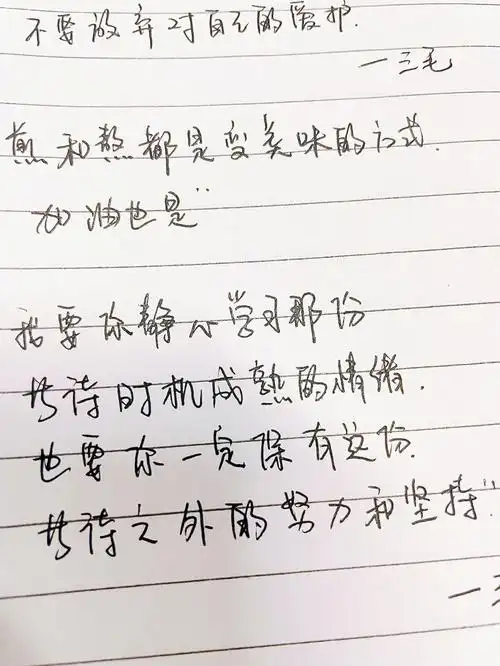 不要放弃对自己的爱护.
—三毛
煎和熬都是变美味的方式.
加油也是"
我要你静心学习那份
等待时机成熟的情绪.
也要你一定保有这份.
等待之外的努力和坚持"
—三